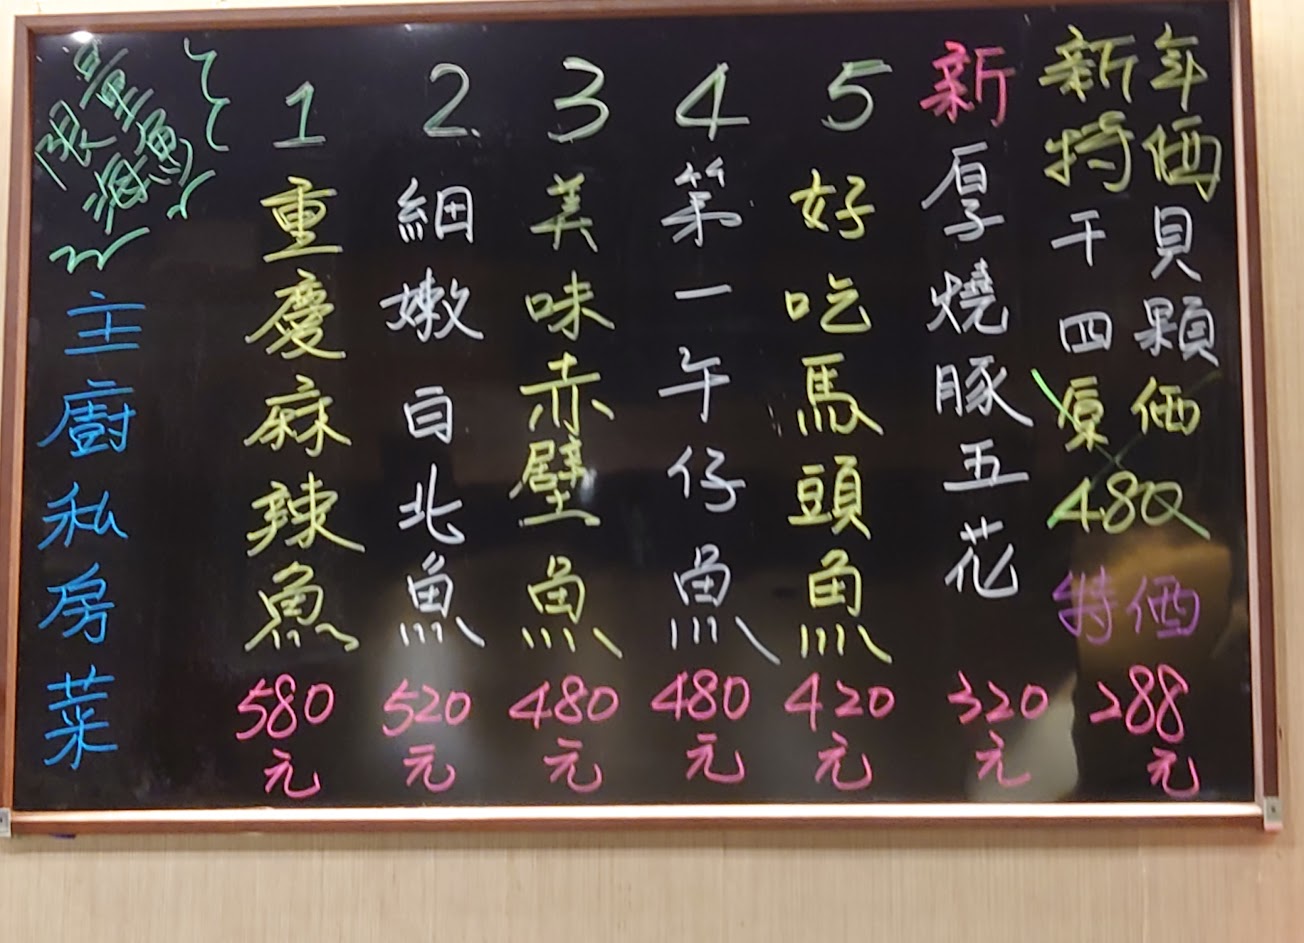 限量
海魚
主廚私房菜
1
重慶麻辣魚
580
元
2
細嫩白北魚
520
元
3
美味赤壁魚
480
元
4
第一午仔魚
480
元
5
好吃馬頭魚
420
元
新
厚燒豚五花
320
元
新年
特価
干貝
四顆
原価
480
特価
288
元